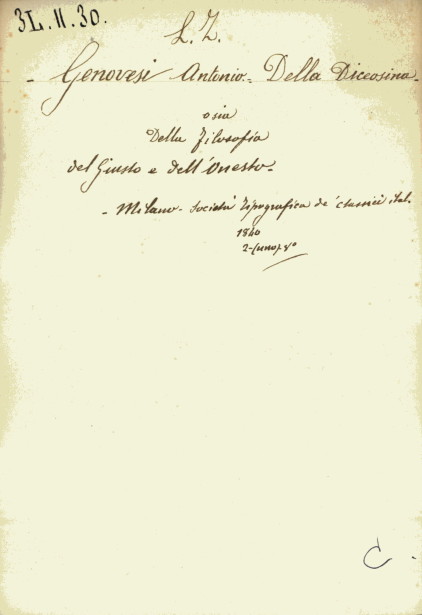 3L.II.30.
L. Z.
- Genovesi Antonio - Della Diceosina -
osia
Della Filosofia
del Giusto e dell'Onesto -
- Milano - Società Tipografica de' classici ital.
1840
C